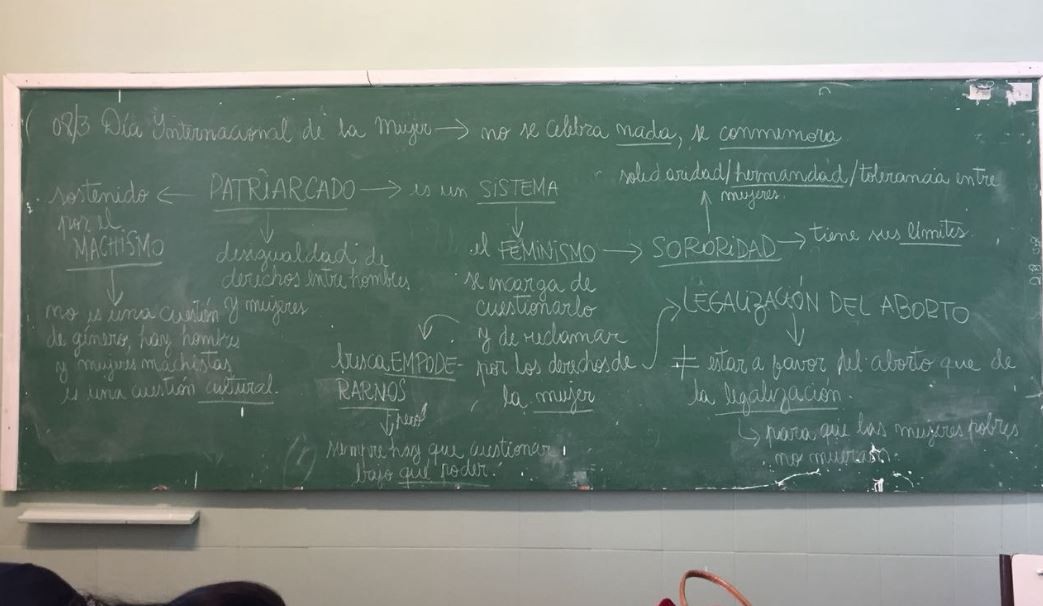 08/3 Día Internacional de la Mujer → no se celebra nada, se conmemora
sostenido ← PATRIARCADO → es un SISTEMA
por el
MACHISMO
↓
no es una cuestión
de género, hay hombres
y mujeres machistas
es una cuestión cultural.
↓
desigualdad de
derechos entre hombres
y mujeres
↓
el FEMINISMO → SORORIDAD → tiene sus límites
se encarga de
cuestionarlo
y de reclamar
por los derechos de
la mujer
solidaridad/hermandad/tolerancia entre
mujeres.
busca EMPODE-
RARNOS
↓ pero
siempre hay que cuestionar
bajo qué poder.
→ LEGALIZACIÓN DEL ABORTO
↓
≠ estar a favor del aborto que de
la legalización.
↳ para que las mujeres pobres
no mueran.